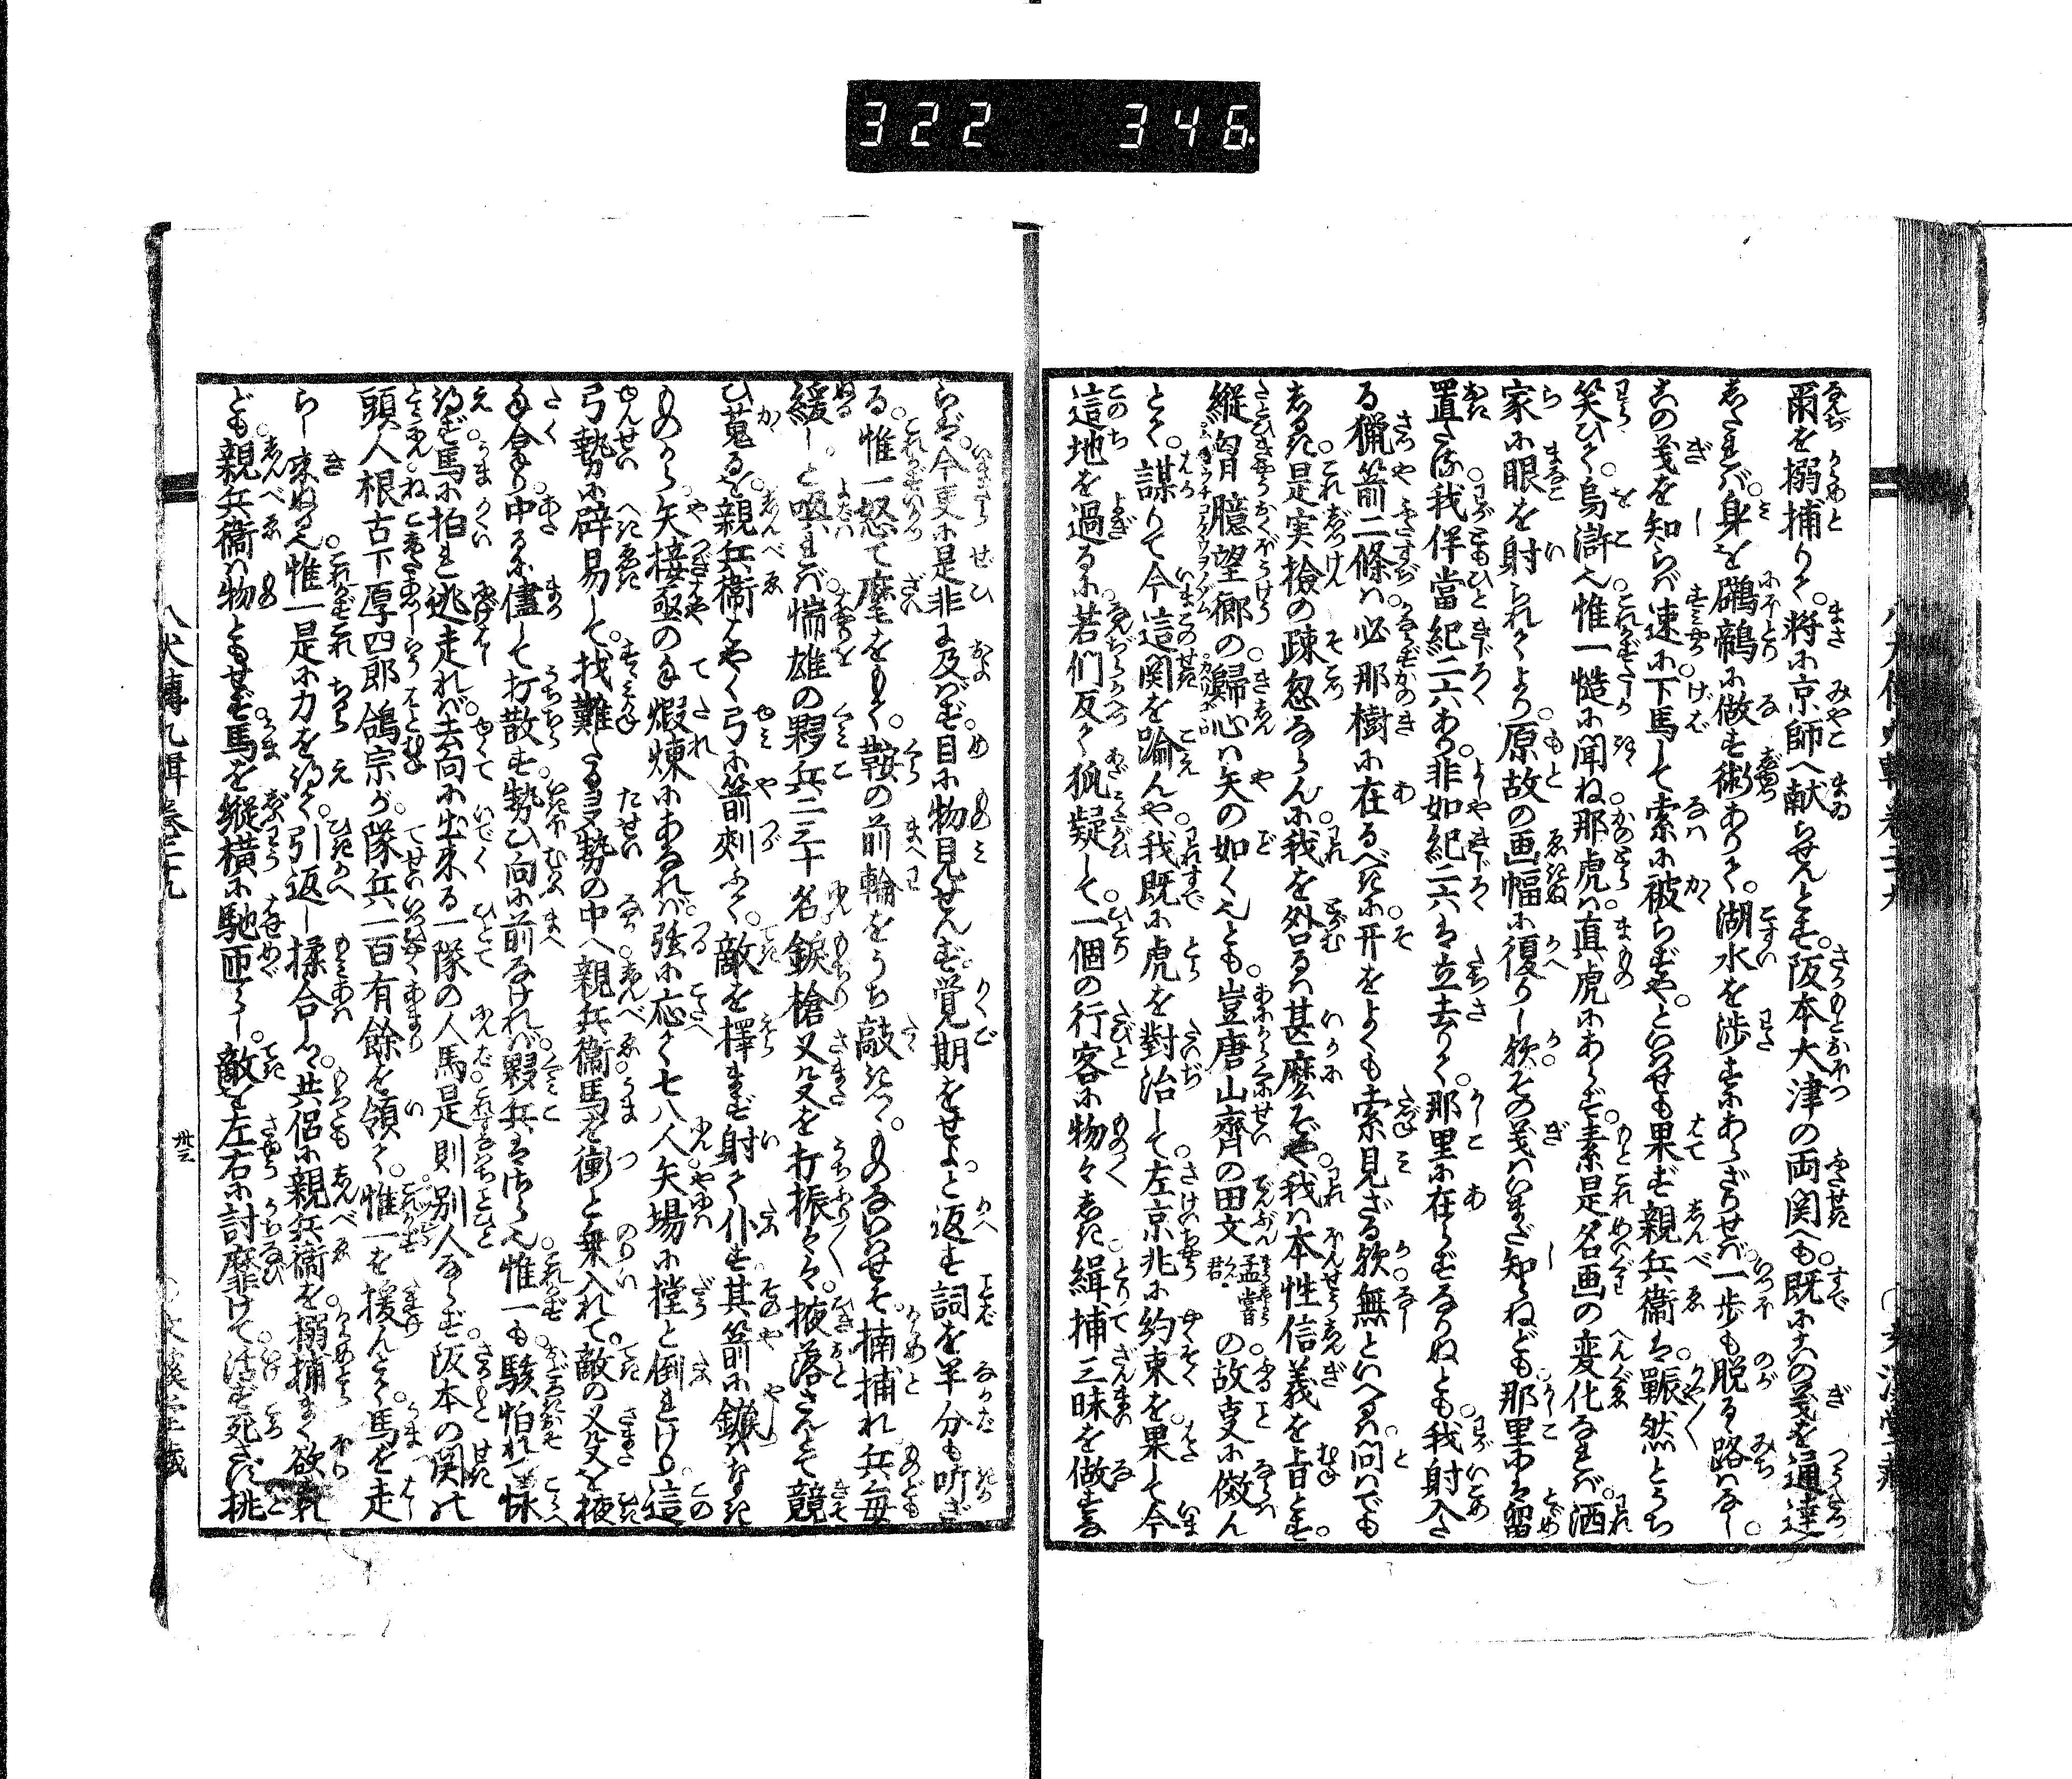 322 346
爾を搦捕りて。将に京師へ献らせんとす。阪本大津の両関へも。既にこの義を通達
したれば。身を鸊鷉に做す術ありて。湖水を渉すにあらざりせば。一歩も脱るゝ路はなし。
この義を知らば速に。下馬して索に被らずや。といはせも果ず親兵衛は。冁然とうち
笑ひて。烏滸也惟一慥に聞ね。那虎は真虎にあらず。素是名画の変化なれば。洒
家に眼を射られてより。原故の画幅に復りし欤。その義はいまだ知らねども。那里には留
置たる。我伴當紀二六あり。非如紀二六は立去りて。那里に在らずなりぬとも。我射入た
る猟箭二條は。必那樹に在るべきに。开をよくも索見ざる欤。無といへるは問はでも
しるき。是実撿の疎忽ならんに。我を咎るは甚麼ぞや。我は本性信義を旨とす。
縦胸臆望郷の。歸心は矢の如く也とも。豈唐山齊の田文孟嘗君。の故事に傚ん
とて。謀りて今這関を踰んや。我既に虎を對治して。左京兆に約束を。果して今
這地を過るに。若們反て狐疑して。一個の行客に物々しき。緝捕三昧を做すなる
八犬傳九輯巻二十九
らば。今更に是非に及ばず。目に物見せんず。覚期をせよ。と返す詞を半分も听ざ
る。惟一怒て麾をもて。鞍の前輪をうち敲きて。ものないはせそ。搦捕れ兵毎
緩し。と喚れば。惴雄の夥兵二三十名。錑槍叉叉を打振々々。掖落さんとて競
ひ蒐るを。親兵衛はやく弓に箭刺ふて。敵を擇まず射て仆す。其箭に鏃はなき
ものから。矢接亟の手煆煉にあなれば。弦に応て七八人。矢場に撲地と倒れけり。這
弓勢に辟易して。找難たる多勢の中へ。親兵衛馬を衝と乗入れて。敵の叉叉を掖
手拿り。中るに儘して打散す。勢ひ向に前なければ。夥兵はさら也惟一も。駭怕れて怺
得ず。馬に拍れ逃走れば。去向に出来る一隊の人馬。是則別人ならず。阪本の関の
頭人。根古下厚四郎鴿宗が。隊兵一百有餘を領て。惟一を援んとて。馬を走
らし来ぬる也。惟一是に力を得て。引返し揉合して。共侶に親兵衛を。搦捕まく欲れ
ども。親兵衛は物ともせず。馬を縦横に馳匝らし。敵を左右に討靡けて。活ず死さず挑
八犬傳九輯巻二十九
卅三
文溪堂藏